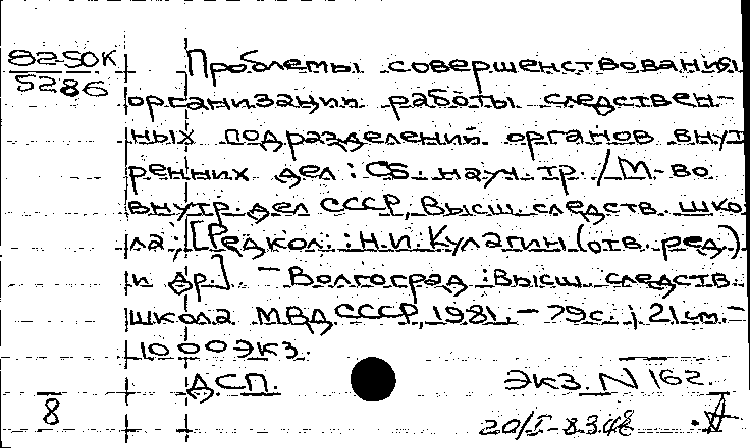 8250К
5286
Проблемы совершенствования
организации работы следствен-
ных подразделений органов внут
ренних дел : Сб. науч. тр. / М-во
внутр. дел СССР, Высш. следств. шко
ла; [Редкол.: Н.И. Кулагин (отв. ред.)
и др.] - Волгоград : Высш. следств.
школа МВД СССР, 1981. - 79с. ; 21 см. -
1000 экз.
Д.С.П. Экз. N 162.
8